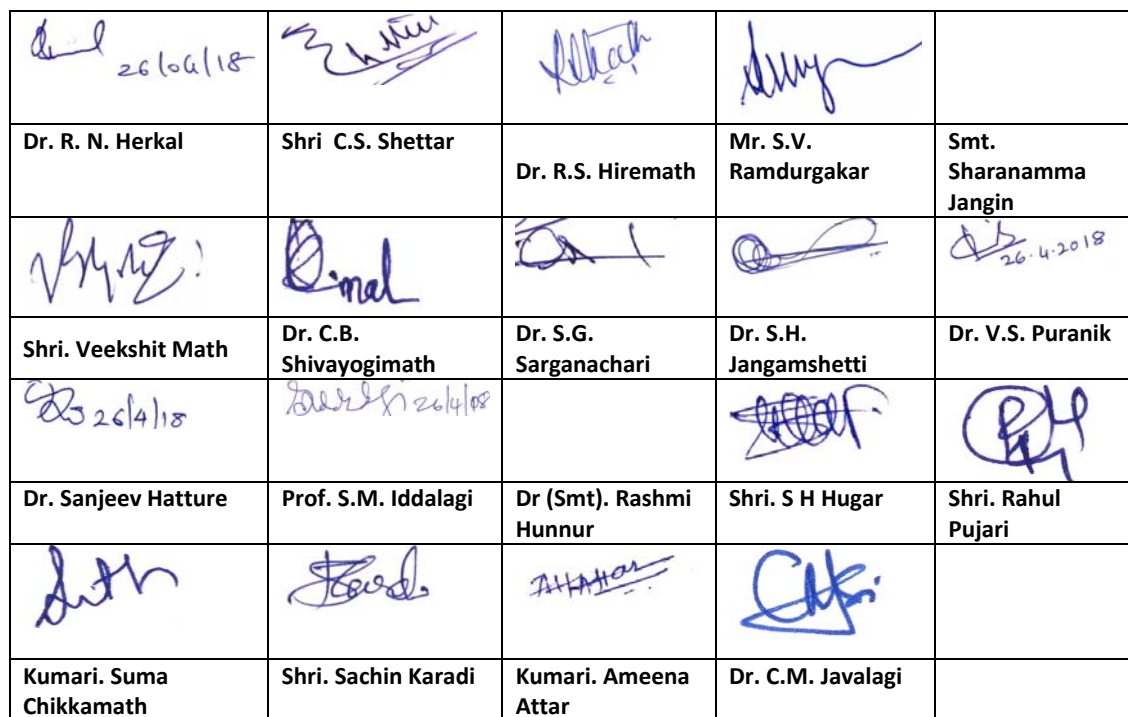 26/04/18
Dr. R. N. Herkal
Shri C.S. Shettar
Dr. R.S. Hiremath
Mr. S.V.
Ramdurgakar
Smt.
Sharanamma
Jangin
26.4.2018
Shri. Veekshit Math
Dr. C.B.
Shivayogimath
Dr. S.G.
Sarganachari
Dr. S.H.
Jangamshetti
Dr. V.S. Puranik
26/4/18
26/4/08
Dr. Sanjeev Hatture
Prof. S.M. Iddalagi
Dr (Smt). Rashmi
Hunnur
Shri. S H Hugar
Shri. Rahul
Pujari
Kumari. Suma
Chikkamath
Shri. Sachin Karadi
Kumari. Ameena
Attar
Dr. C.M. Javalagi